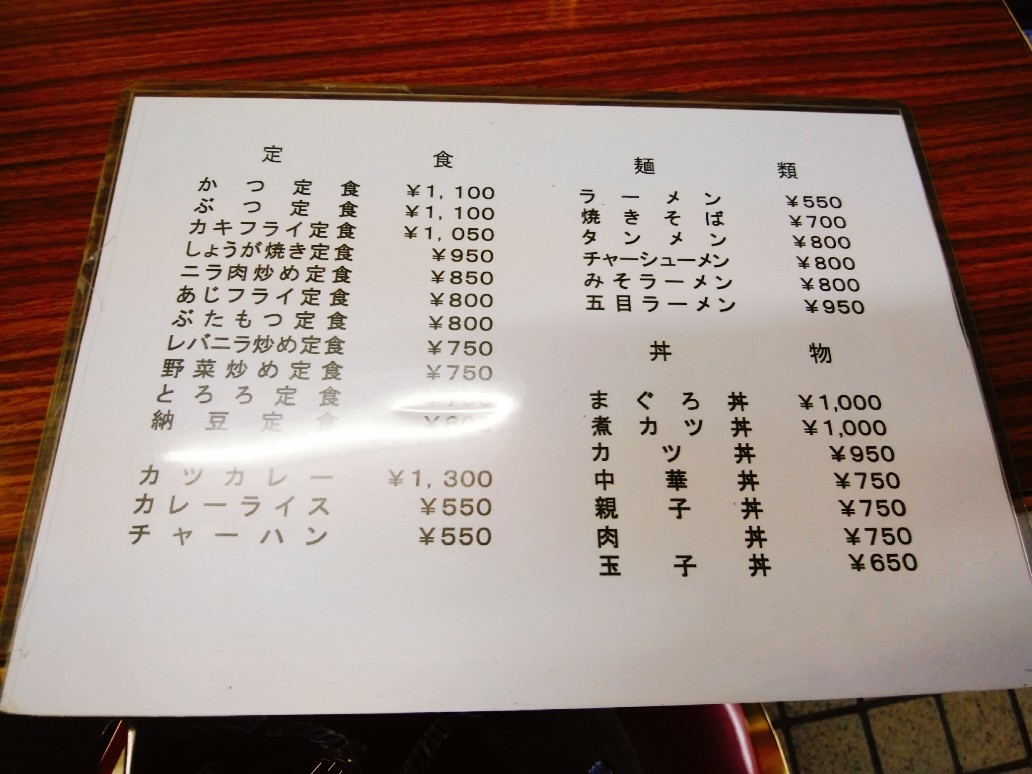 定食
かつ定食 ¥1,100
ぶつ定食 ¥1,100
カキフライ定食 ¥1,050
しょうが焼き定食 ¥950
ニラ肉炒め定食 ¥850
あじフライ定食 ¥800
ぶたもつ定食 ¥800
レバニラ炒め定食 ¥750
野菜炒め定食 ¥750
とろろ定食
納豆定食
カツカレー ¥1,300
カレーライス ¥550
チャーハン ¥550
麺類
ラーメン ¥550
焼きそば ¥700
タンメン ¥800
チャーシューメン ¥800
みそラーメン ¥800
五目ラーメン ¥950
丼物
まぐろ丼 ¥1,000
煮カツ丼 ¥1,000
カツ丼 ¥950
中華丼 ¥750
親子丼 ¥750
肉丼 ¥750
玉子丼 ¥650